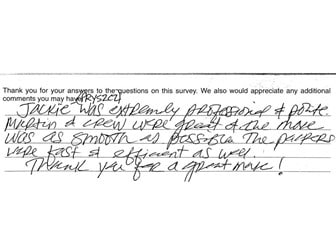 Thank you for your answers to the questions on this survey. We also would appreciate any additional
comments you may have:
Jackie was extremely professional & polite.
Martin & crew were great & the move
was as smooth as possible. The packers
were fast & efficient as well.
Thank you for a great move!